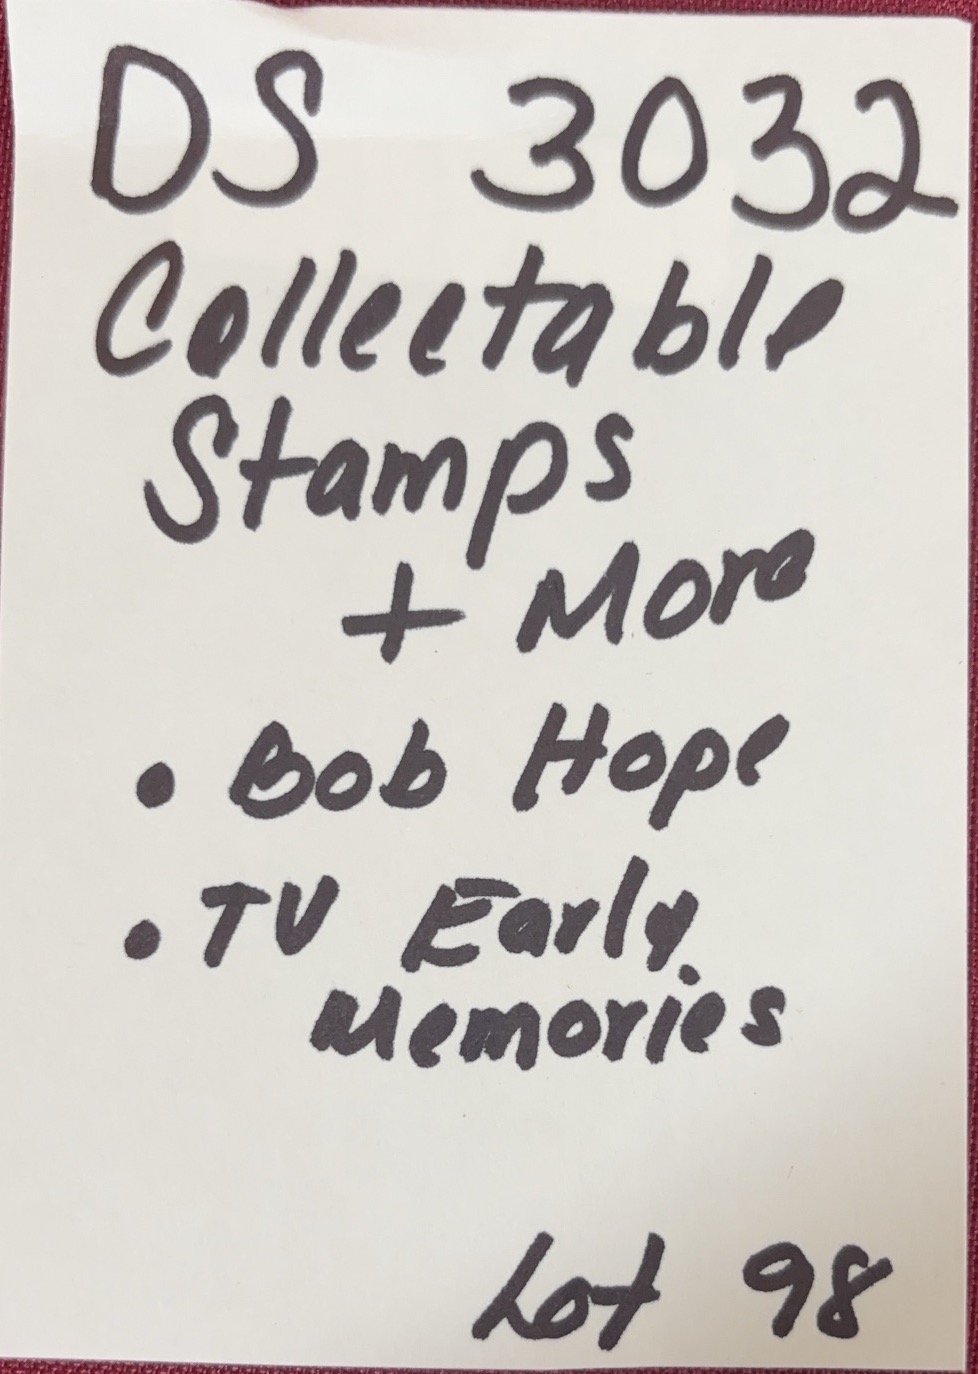 DS 3032
Collectable
Stamps
+ More
• Bob Hope
• TV Early
Memories
Lot 98